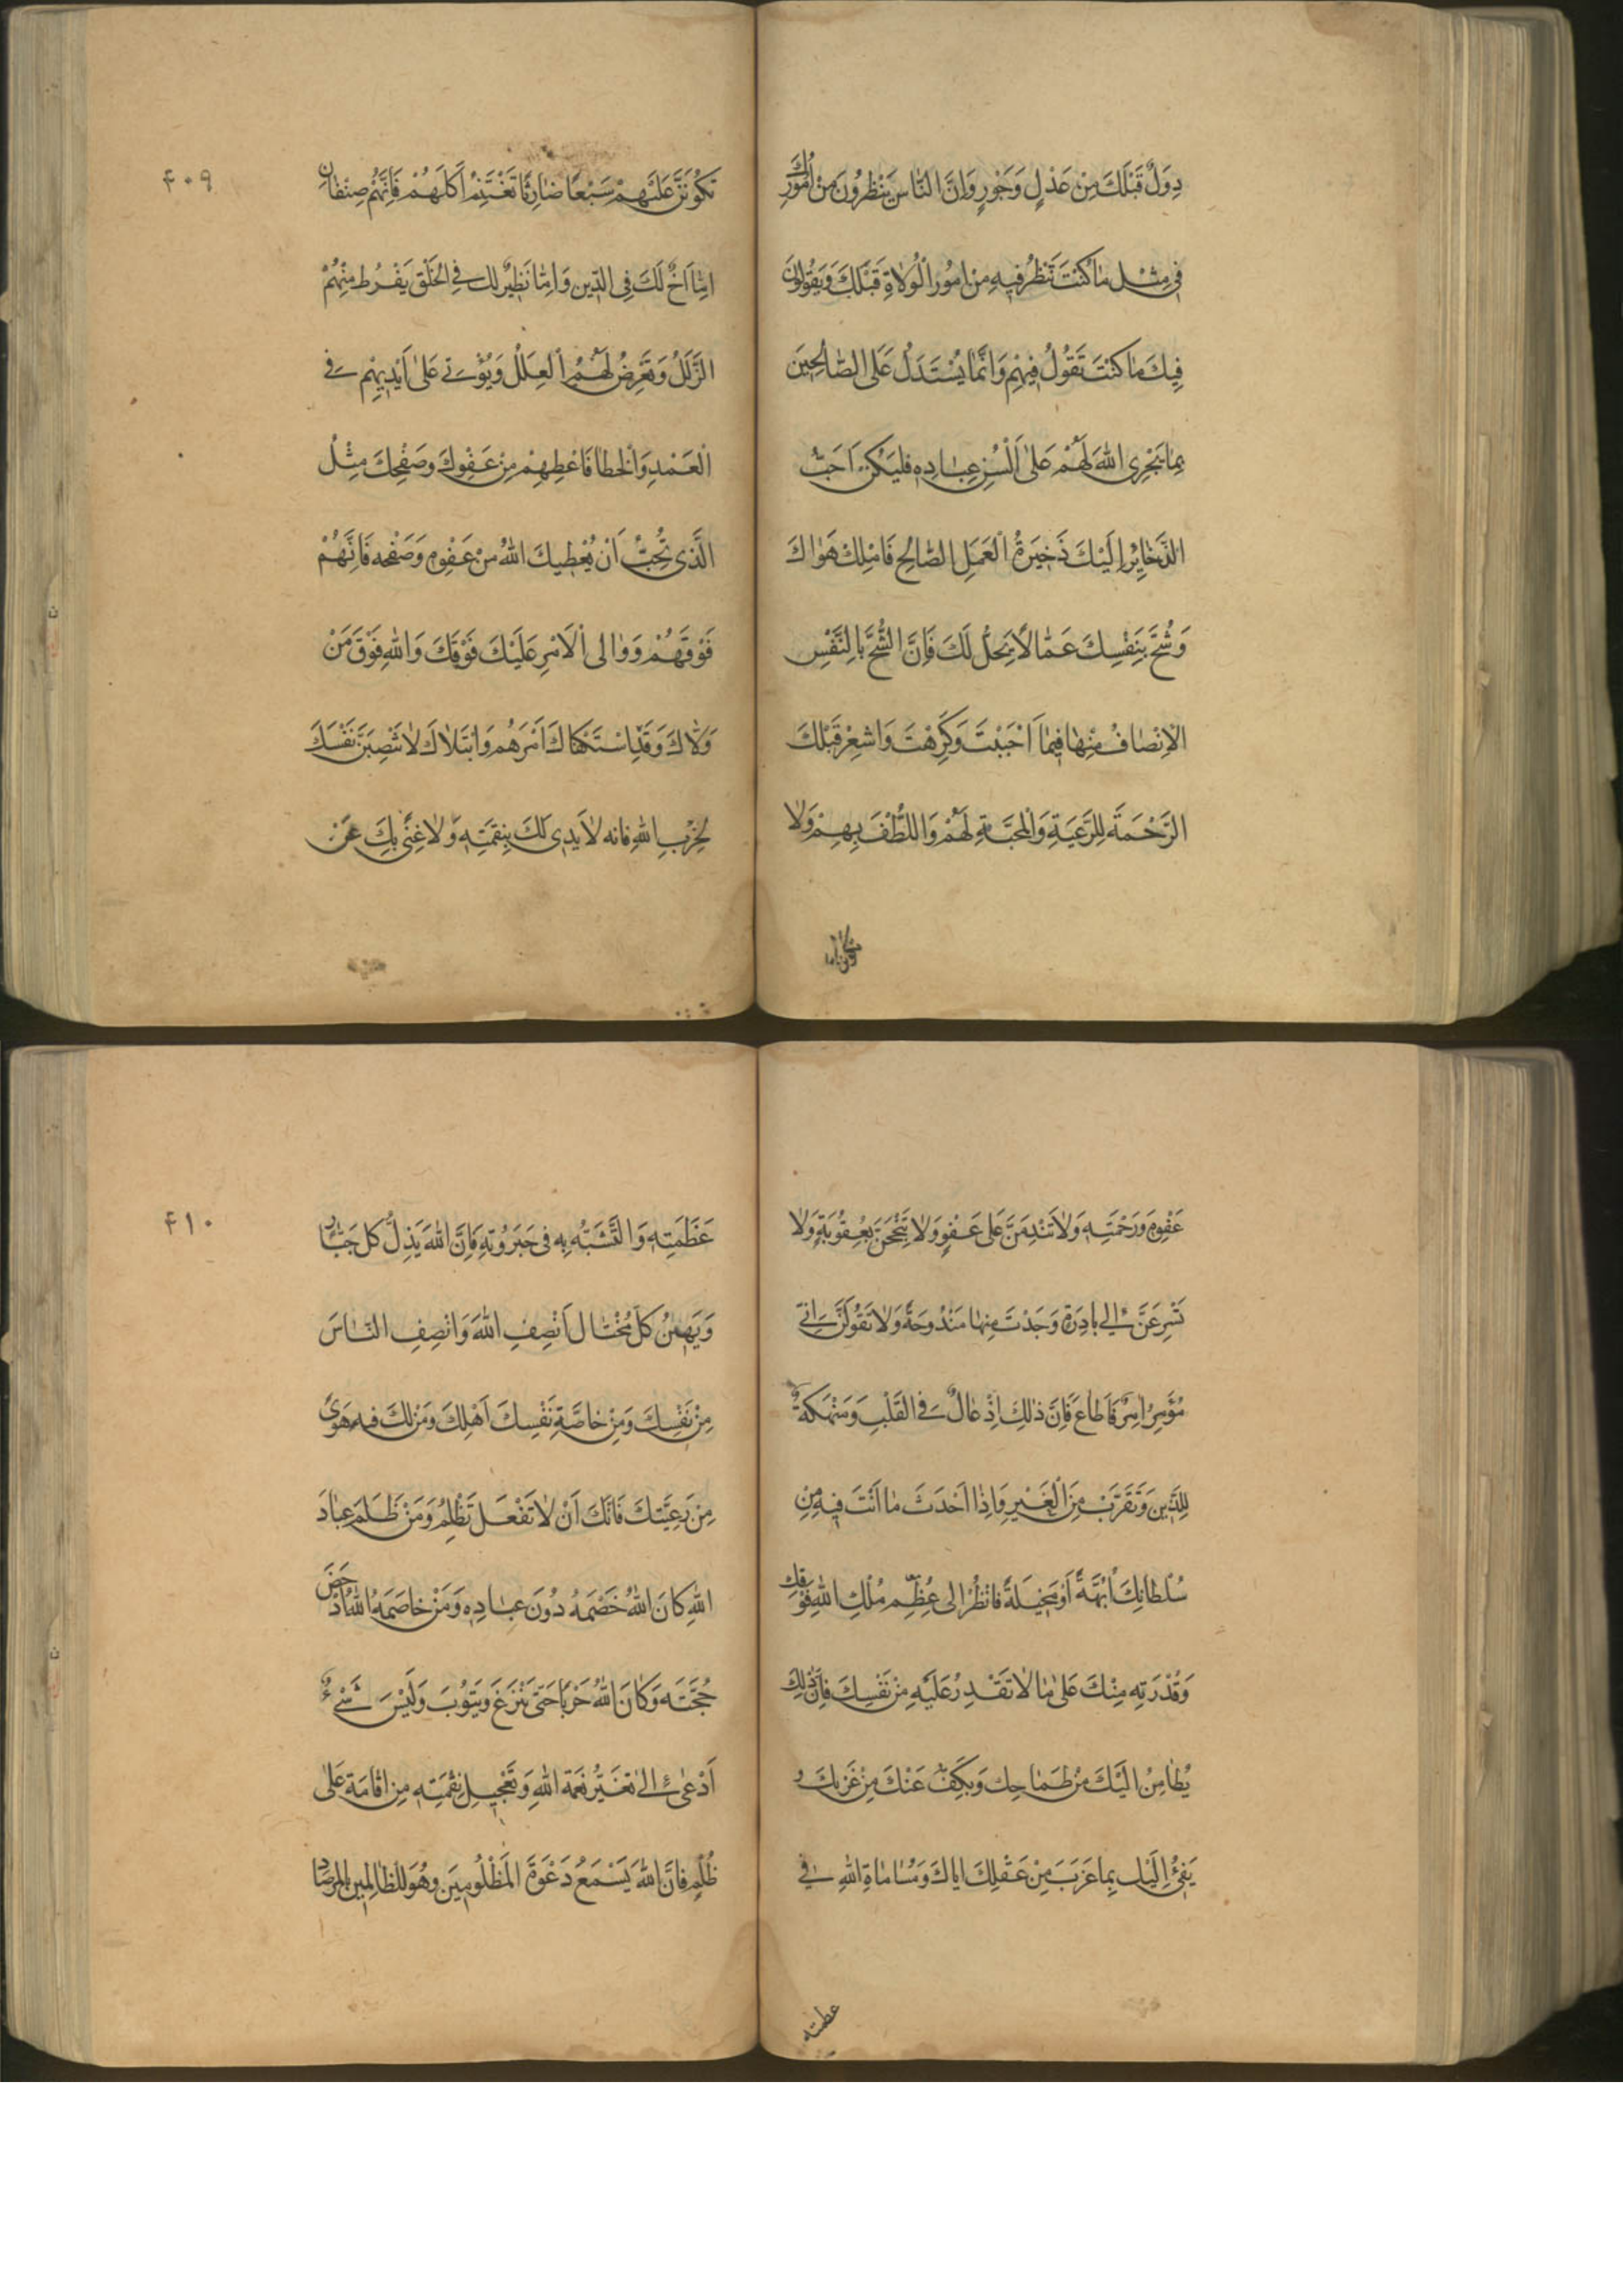 دِوَلٌ قَبْلَكَ مِنْ عَدْلٍ وَجَوْرٍ وَاِنَّ النّاسَ يَنْظُرُونَ مِنْ اُمُورِكَ
فى مِثْلِ مٰا كُنْتَ تَنْظُرُ فيهِ مِنْ اُمُورِ الْوُلاٰةِ قَبْلَكَ وَيَقُولُونَ
فِيكَ مٰا كُنْتَ تَقُولُ فِيْهِمْ وَاِنَّمٰا يُسْتَدَلُّ عَلَى الصّٰالِحِينَ
بِمٰا يَجْرِى اللّٰهَ لَهُمْ عَلىٰ اَلْسُنِ عِبٰادِهِ فليَكُنْ اَحَبُّ
الذَّخٰايِرْ اِلَيْكَ ذَخِيرَةُ الْعَمَلِ الصّالِحِ فَامْلِكْ هَوٰاكَ
وَشُحَّ بِنَفْسِكَ عَمّٰا لاٰ يَحِلُّ لَكَ فَاِنَّ الشُّحَّ بِالنَّفْسِ
الاِنْصٰافُ مِنْهٰا فِيمٰا اَحْبَبْتَ وَكَرِهْتَ وَاشْعِرْ قَبْلَكَ
الرَّحْمَةَ لِلرَّعِيَةِ وَالْمَحَبَّةِ لَهُمْ وَاللُّطْفَ بِهِمْ وَلاٰ
۴۰۹
تَكُونَنَّ عَلَيْهِمْ سَبْعًا ضٰارِيًا تَغْتَنِمُ اَكْلَهُمْ فَاِنَّهُمْ صِنْفٰانِ
اِمّٰا اَخٌ لَكَ فِى الدّينِ وَاِمّٰا نَظِيرٌ لك فِى الْخَلْقِ يَفْرُط مِنْهُمْ
الزَّلَلُ وَتَعَرِضُ لَهُمُ الْعِلَلُ وَيُؤْتىٰ عَلىٰ اَيْدِيهِمْ فى
الْعَمْدِ وَالْخَطا فَاَعْطِهِمْ مِنْ عَفْوِكَ وصَفْحِكَ مِثْلُ
الَّذى تُحِبُّ اَنْ يُعْطِيكَ اللّٰهُ مِنْ عَفْوِهِ وَصَفْحِهِ فَاِنَّهُمْ
فَوْقَهُمْ وَوٰالى الْاَمْرِ عَلَيْكَ فَوْقَكَ وَاللّٰهِ فَوْقَ مَنْ
وَلّاٰكَ وَقَدْ اسْتَكْفٰاكَ اَمْرَهُم وَابْتَلاٰكَ لاٰ تَنْصِبَنَّ نَفْسَكَ
لِحَرْبِ اللّٰهِ فانه لاٰ يَدِى لَكَ بِنِقْمَتِهِ وَلاٰ غِنىً بِكَ عَنْ
عَفْوِهِ وَرَحْمَتِهِ وَلاٰ تَنْدِمَنَّ عَلى عَفْوٍ وَلاٰ تَبْجَحَنَّ بِعُقُوبَةٍ وَلاٰ
تَسْرِعَنَّ اِلى بادِرَةٍ وَجَدْتَ مِنهٰا مَنْدُوحَةً وَلاٰ تَقُولَنَّ اِنّى
مُؤَمِرٌ اٰمِرٌ فَاُطٰاع فَاِنَّ ذٰلِكَ اِدْغٰالٌ فى الْقَلْبِ وَمَنْهَكَةٌ
لِلدّينِ وَتَقَرُّبْ مِنَ الْغَيرِ وَاِذٰا اَحْدَثَ مٰا اَنْتَ فِيهِ مِنْ
سُلْطٰانِكَ اُبَّهَةً اَوْ مَخِيلَةً فَانْظُرْ اِلى عِظَمِ مُلْكِ اللّٰهِ فَوْقَكَ
وَقُدْرَتِهِ مِنْكَ عَلىٰ مٰا لاٰ تَقْدِرُ عَلَيْهِ مِنْ نَفْسِكَ فَاِنَّ ذٰلِكَ
يُطٰامِنُ اِلَيْكَ مِنْ طَمٰاحِك وَيَكُفُّ عَنْكَ مِنْ غَرْبِكَ وَ
يَفِىُٔ اِلَيْكَ بِمٰا عَزَبَ مِنْ عَقْلِكَ اياكَ وَمُسٰامٰاةِ اللّٰهِ فى
عظمته
۴۱۰
عَظَمَتِهِ وَالتَّشَبُّهِ بِه فى جَبَرُوتِهِ فَاِنَّ اللّٰهَ يَذِلُّ كل جَبّٰارٍ
وَيَهينُ كُلَّ مُخْتٰالٍ اَنْصِفِ اللّٰهَ وَانْصِفِ النّٰاسَ
مِنْ نَفْسِكَ وَمِنْ خٰاصَّةِ نَفْسِكَ اَهْلِكَ وَمَنْ لَكَ فيه هَوىً
مِنْ رَعِيَّتِكَ فَانَّكَ اَنْ لاٰ تَفْعَلْ تَظْلِمُ وَمَنْ ظَلَمَ عِبٰادَ
اللّٰهِ كٰانَ اللّٰهُ خَصْمَهُ دُونَ عِبٰادِهِ وَمَنْ خٰاصَمَهُ اللّٰهُ اَدْحَضَ
حُجَّتَهُ وَكٰانَ اللّٰهُ حَرْبًا حَتّى يَنْزِعَ وَيَتُوْبَ وَلَيْسَ شَىْءٌ
اَدْعىٰ اِلىٰ تَغَيُّرِ نعْمَة اللّٰهِ وَتَعْجِيلِ نِقْمَتِهِ مِن اقٰامَةٍ عَلىٰ
ظُلْمٍ فَاِنَّ اللّٰهَ يَسْمَعُ دَعْوَةَ الْمَظْلُومِينَ وهُوَ لِلظّٰالِمِينَ بِالْمِرصٰادِ